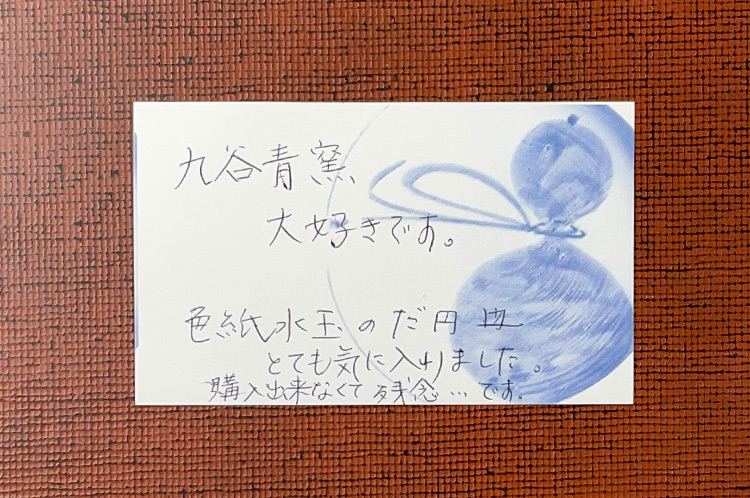 九谷青窯、
大好きです。
色紙水玉のだ円皿
とても気に入りました。
購入出来なくて残念…です。